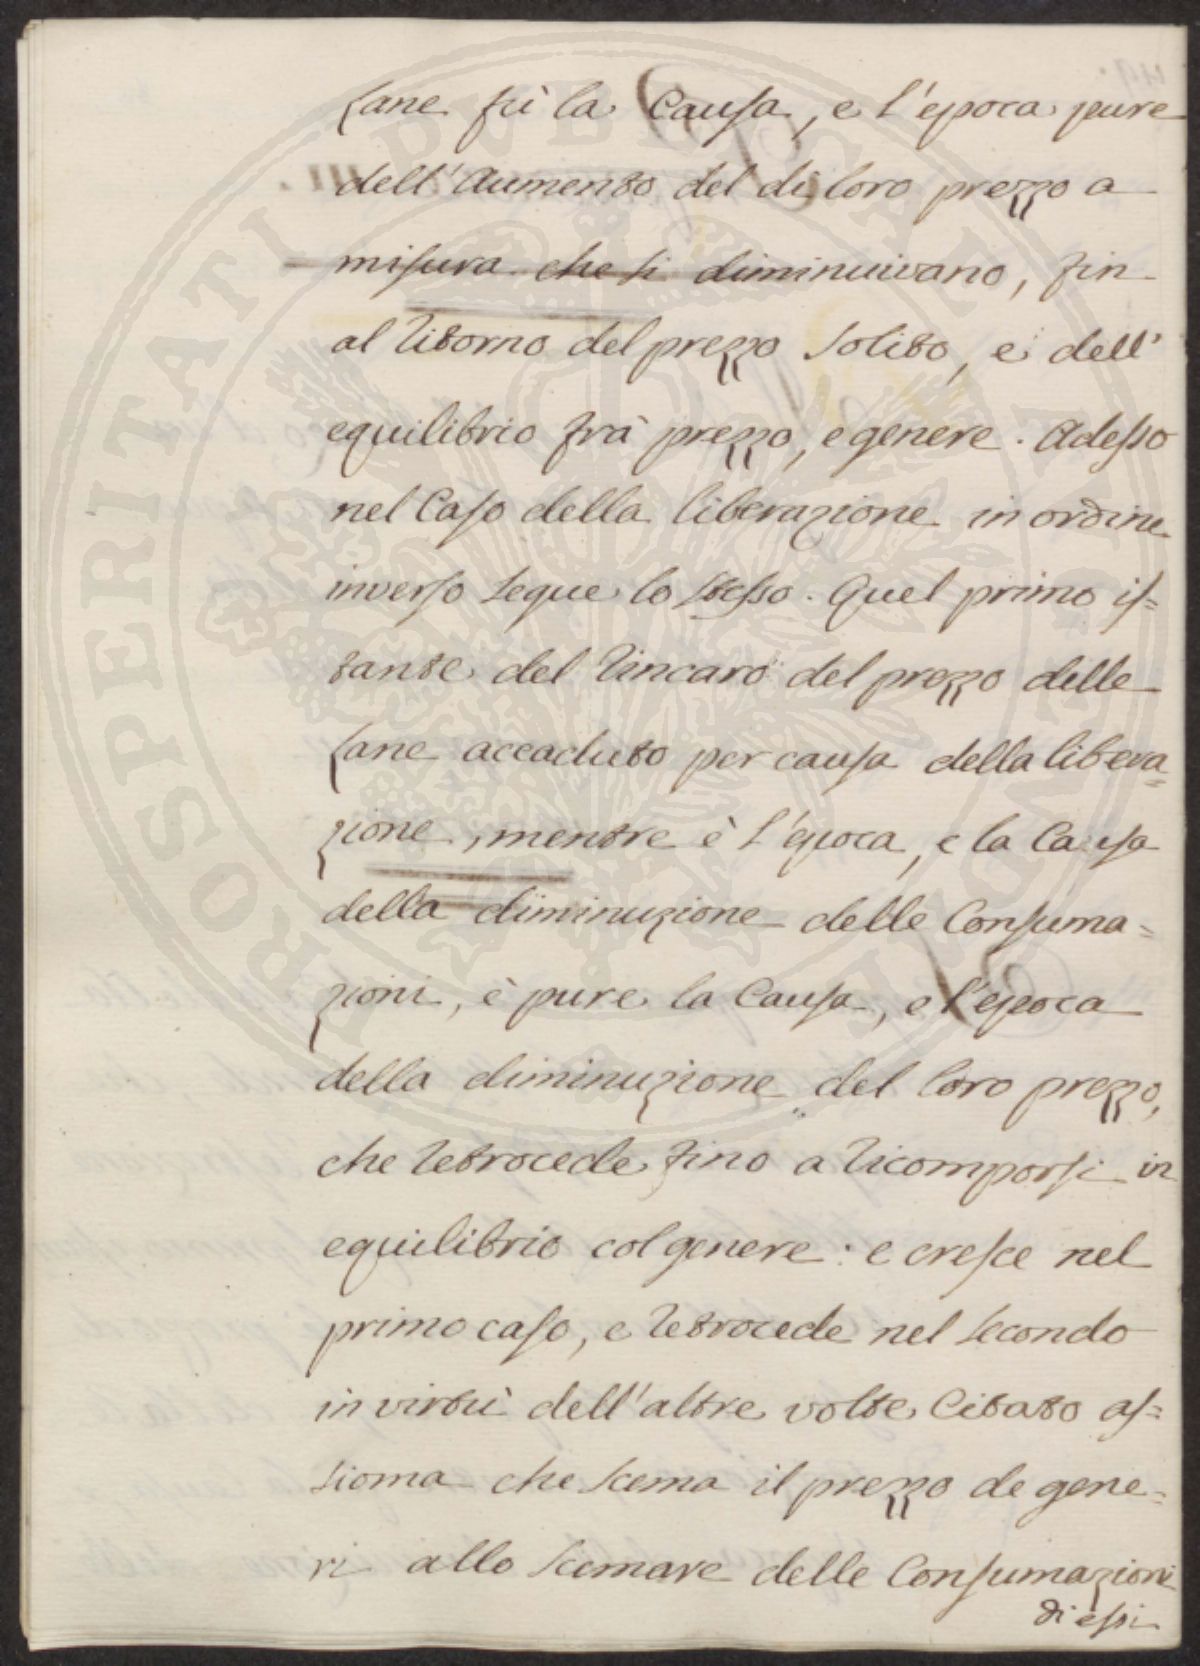 Lane fù la Causa, e l'epoca pure
dell'Aumento del di loro prezzo a
misura che si diminuivano, fin
al ritorno del prezzo solito, e dell'
equilibrio frà prezzo, e genere. Adesso
nel Caso della liberazione in ordine
inverso segue lo stesso. Quel primo is=
tante del rincaro del prezzo delle
Lane accaduto per causa della libera=
zione, mentre è l'epoca, e la Causa
della diminuzione delle Consuma=
zioni, è pure la Causa, e l'epoca
della diminuzione del loro prezzo,
che retrocede fino a ricomporsi in
equilibrio col genere: e cresce nel
primo caso, e retrocede nel secondo
in virtù dell'altre volte Citato as=
sioma che scema il prezzo de gene=
ri allo scemare delle Consumazioni
di essi
PROSPERITATI PUBLICAE AUGENDAE